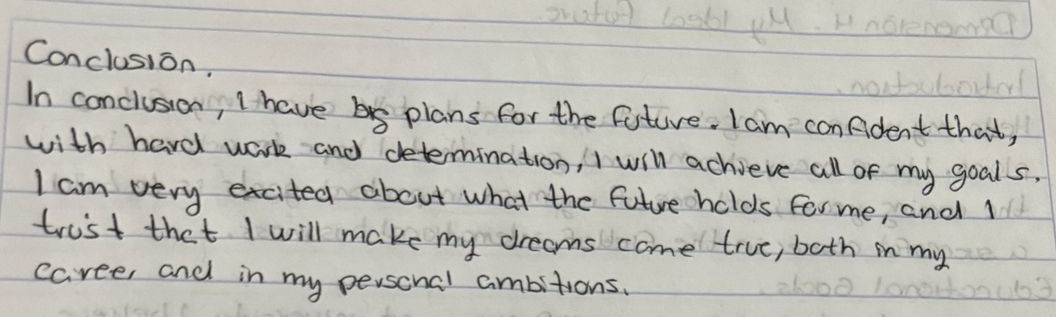 Conclusion.
In conclusion, I have big plans for the future. I am confident that,
with hard work and determination, I will achieve all of my goals.
I am very excited about what the future holds for me, and I
trust that I will make my dreams come true, both in my
career and in my personal ambitions.